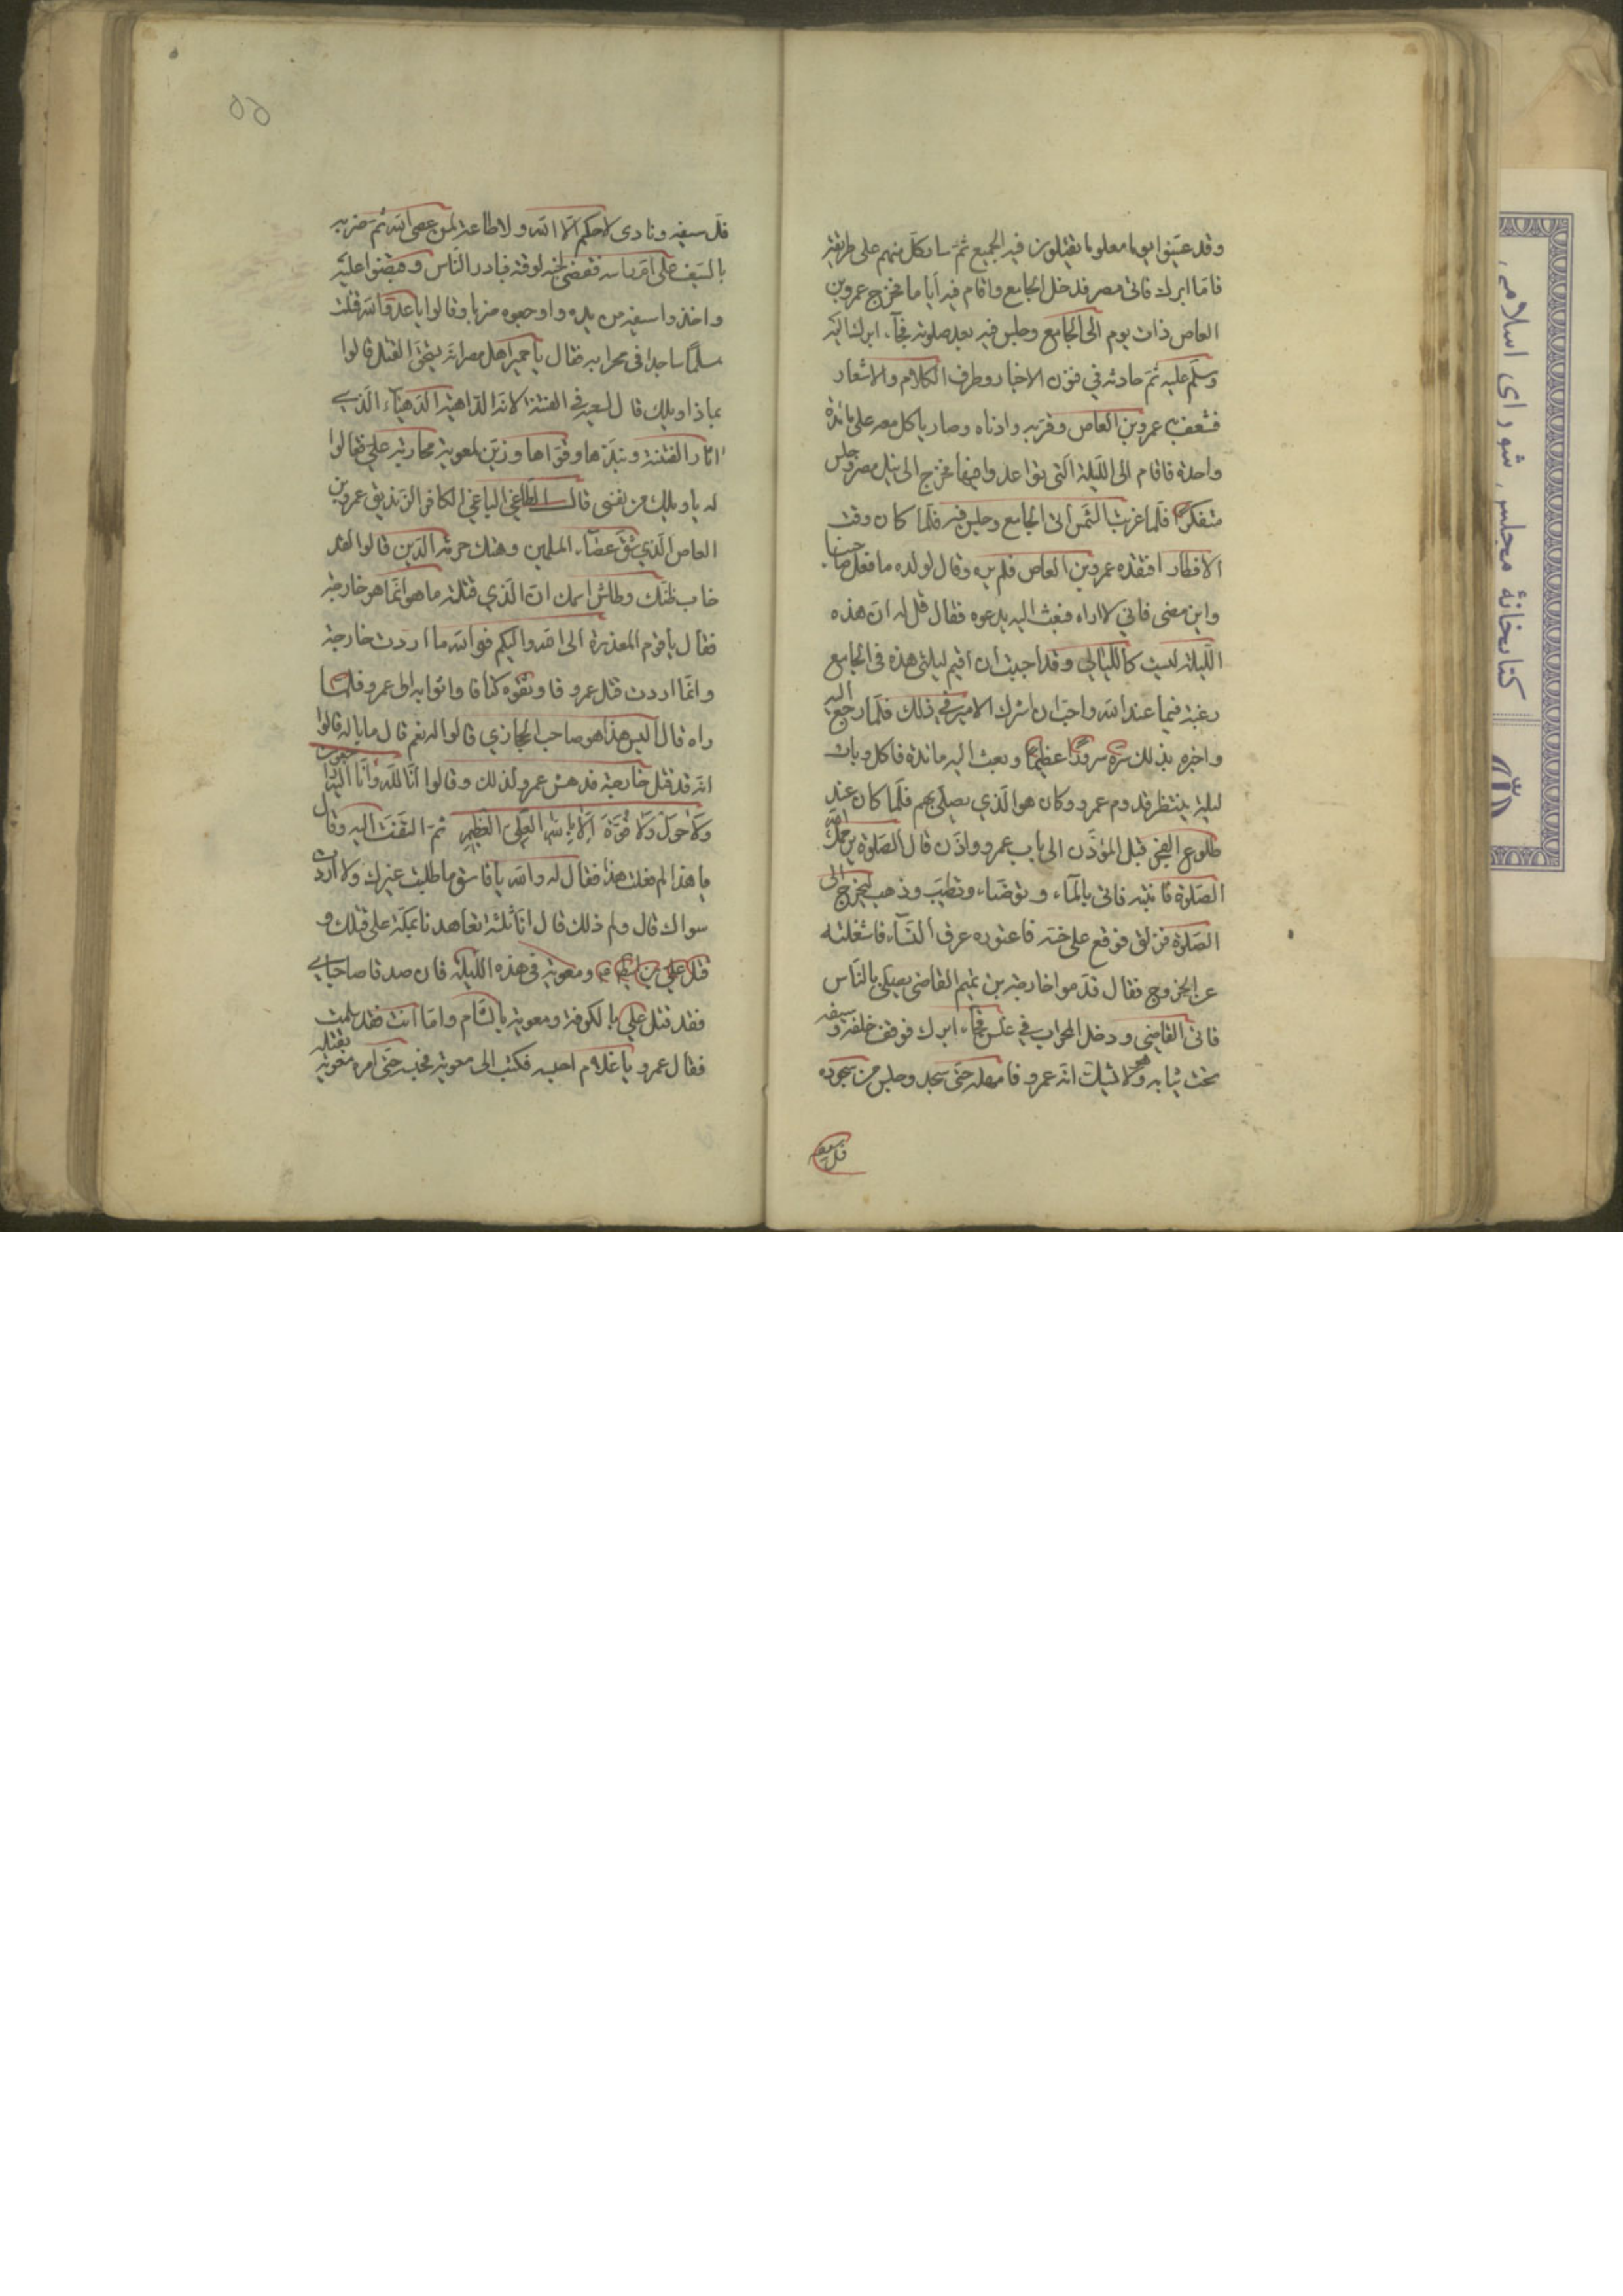 وقد عينوا يوما معلوما يقتلون فيه الجميع ثم سار كل منهم على طريقته
فاما ابرك فاتى مصر فدخل الجامع واقام فيه أياما فخرج عمرو بن
العاص ذات يوم الى الجامع وجلس فيه بعد صلوته فجآء ابرك اليه
وسلم عليه ثم حادثه في فنون الاخبار وطرف الكلام والاشعار
فشعف به عمرو بن العاص وقربه وادناه وصار ياكل معه على مائدة
واحدة فاقام الى الليلة التى تواعدوا فيها فخرج الى نيل مصر وجلس
متفكرا فلما غربت الشمس اتى الجامع وجلس فيه فلما كان وقت
الافطار افتقده عمرو بن العاص فلم يره وقال لولده ما فعل صاحبنا
واين مضى فاني لا اراه فبعث اليه يدعوه فقال قل له ان هذه
الليلة ليست كالليالي وقد احببت ان اقيم ليلتي هذه في الجامع
رغبة فيما عند الله واحب ان اشرك الامير في ذلك فلما رجع اليه
واخبره بذلك سره سرورا عظيما وبعث اليه مائدة فاكل وبات
ليلته ينتظر قدوم عمرو وكان هو الذي يصلي بهم فلما كان عند
طلوع الفجر اقبل المؤذن الى باب عمرو واذن قال الصلوة يرحمك الله
الصلوة فانتبه فاتى بالمآء وتوضاء وتطيب وذهب ليخرج الى
الصلوة فزلق فوقع على جنبه فاعتوره عرق النسآء فاشغلته
عن الخروج فقال قدموا خارجة بن تميم القاضى يصلى بالناس
فاتى القاضي ودخل المحراب في غلس فجاء ابرك فوقف خلفه وسيفه
تحت ثيابه وهو لا يشك انه عمرو فامهله حتى سجد وجلس من سجوده
فسل سيفه
٥٥
فسل سيفه ونادى لا حكم الا لله ولا طاعة لمن عصى الله ثم ضربه
بالسيف على ام راسه فقضى نحبه لوقته فبادر الناس وقبضوا عليه
واخذوا سيفه من يده واوجعوه ضربا وقالوا يا عدو الله قتلت
مسلما ساجدا في محرابه فقال يا حمير اهل مصر انه يستحق القتل قالوا
بماذا ويلك قال لسعيه في الفتنة لانه الداهية الدهيآء الذي
اثار الفتنة ونبذها وقواها وزين لمعوية محاربة علي فقالوا
له يا ويلك من تعنى قال الطاغي الباغي الكافر الزنديق عمرو بن
العاص الذي شق عصآء المسلمين وهتك حرمة الدين قالوا لقد
خاب ظنك وطاش سهمك ان الذي قتلته ما هو انما هو خارجة
فقال يا قوم المعذرة الى الله واليكم فوالله ما اردت خارجة
وانما اردت قتل عمرو فاوثقوه كتافا واتوا به الى عمرو فلما
راه قال اليس هذا هو صاحب الحجازي قالوا له نعم قال ما باله قالوا
انه قد قتل خارجة فدهش عمرو لذلك وقالوا انا لله وانا اليه راجعون
ولا حول ولا قوة الا بالله العلى العظيم ثم التفت اليه وقال
يا هذا لم فعلت هذا فقال له والله يا فاسق ما طلبت غيرك ولا اردت
سواك قال ولم ذلك قال انا ثلثة تعاهدنا بمكة على قتلك و
قتل علي بن ومعوية في هذه الليلة فان صدقا صاحباي
فقد قتل علي بالكوفة ومعوية بالشام واما انت فقد سلمت
فقال عمرو يا غلام احبسه فكتب الى معوية فحبسه حتى امره معوية بقتله
كتابخانهٔ مجلس شورای اسلامی